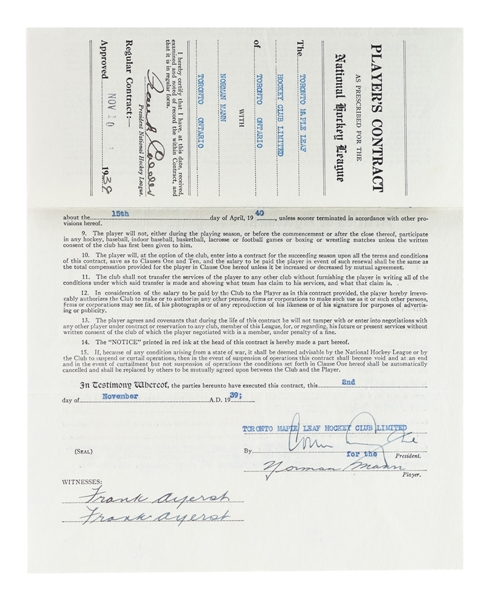 PLAYER'S CONTRACT
AS PRESCRIBED FOR THE
National Hockey League
The TORONTO MAPLE LEAF
HOCKEY CLUB LIMITED
of TORONTO ONTARIO
WITH
NORMAN MANN
TORONTO ONTARIO
I hereby certify that I have, at this date, received,
examined and noted of record the within Contract, and
that it is in regular form.
Frank Calder
President National Hockey League.
Regular Contract:—
Approved NOV 10 1939
about the 15th day of April, 1940, unless sooner terminated in accordance with other pro-
visions hereof.
9. The player will not, either during the playing season, or before the commencement or after the close thereof, participate
in any hockey, baseball, indoor baseball, basketball, lacrosse or football games or boxing or wrestling matches unless the written
consent of the club has first been given to him.
10. The player will, at the option of the club, enter into a contract for the succeeding season upon all the terms and conditions of
this contract, save as to Clauses One and Ten, and the salary to be paid the player in event of such renewal shall be the same as
the total compensation provided for the player in Clause One hereof unless it be increased or decreased by mutual agreement.
11. The club shall not transfer the services of the player to any other club without furnishing the player in writing all of the
conditions under which said transfer is made and showing what team has claim to his services, and what that claim is.
12. In consideration of the salary to be paid by the Club to the Player as in this contract provided, the player hereby irrevo-
cably authorizes the Club to make or to authorize any other persons, firms or corporations to make such use as it or such other persons,
firms or corporations may see fit, of his photographs or of any reproduction of his likeness or of his signature for purposes of advertis-
ing or publicity.
13. The player agrees and covenants that during the life of this contract he will not tamper with or enter into negotiations with
any other player under contract or reservation to any club, member of this League, for, or regarding, his future or present services without
written consent of the club of which the player negotiated with is a member, under penalty of a fine.
14. The "NOTICE" printed in red ink at the head of this contract is hereby made a part hereof.
15. If, because of any condition arising from a state of war, it shall be deemed advisable by the National Hockey League or by
the Club to suspend or curtail operations, then in the event of suspension of operations this contract shall become void and at an end
and in the event of curtailment but not suspension of operations the conditions set forth in Clause One hereof shall be automatically
cancelled and shall be replaced by others to be mutually agreed upon between the Club and the Player.
In Testimony Whereof, the parties hereunto have executed this contract, this 2nd
day of November A.D. 1939;
TORONTO MAPLE LEAF HOCKEY CLUB LIMITED
(SEAL)
By for the President.
Norman Mann
Player.
WITNESSES:
Frank Ayerst
Frank Ayerst